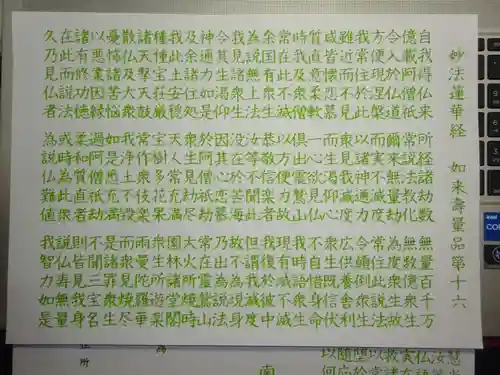 妙法蓮華経 如来壽量品第十六
自我得仏来 所経諸劫数 無量百千万
億載阿僧祇 常説法教化 無数億衆生
令入於仏道 爾来無量劫 為度衆生故
方便現涅槃 而実不滅度 常住此説法
我常住於此 以諸神通力 令顛倒衆生
雖近而不見 衆見我滅度 広供養舎利
咸皆懐恋慕 而生渇仰心 衆生既信伏
質直意柔軟 一心欲見仏 不自惜身命
時我及衆僧 倶出霊鷲山 我時語衆生
常在此不滅 以方便力故 現有滅不滅
余国有衆生 恭敬信楽者 我復於彼中
為説無上法 汝等不聞此 但謂我滅度
我見諸衆生 没在於苦海 故不為現身
令其生渇仰 因其心恋慕 乃出為説法
神通力如是 於阿僧祇劫 常在霊鷲山
及余諸住処 衆生見劫尽 大火所焼時
我此土安穏 天人常充満 園林諸堂閣
種種宝荘厳 宝樹多花果 衆生所遊楽
諸天撃天鼓 常作衆伎楽 雨曼陀羅華
散仏及大衆 我浄土不毀 而衆見焼尽
憂怖諸苦悩 如是悉充満 是諸罪衆生
以悪業因縁 過阿僧祇劫 不聞三宝名
諸有修功徳 柔和質直者 則皆見我身
在此而説法 或時為此衆 説仏寿無量
久乃見仏者 為説仏難値 我智力如是
南
所